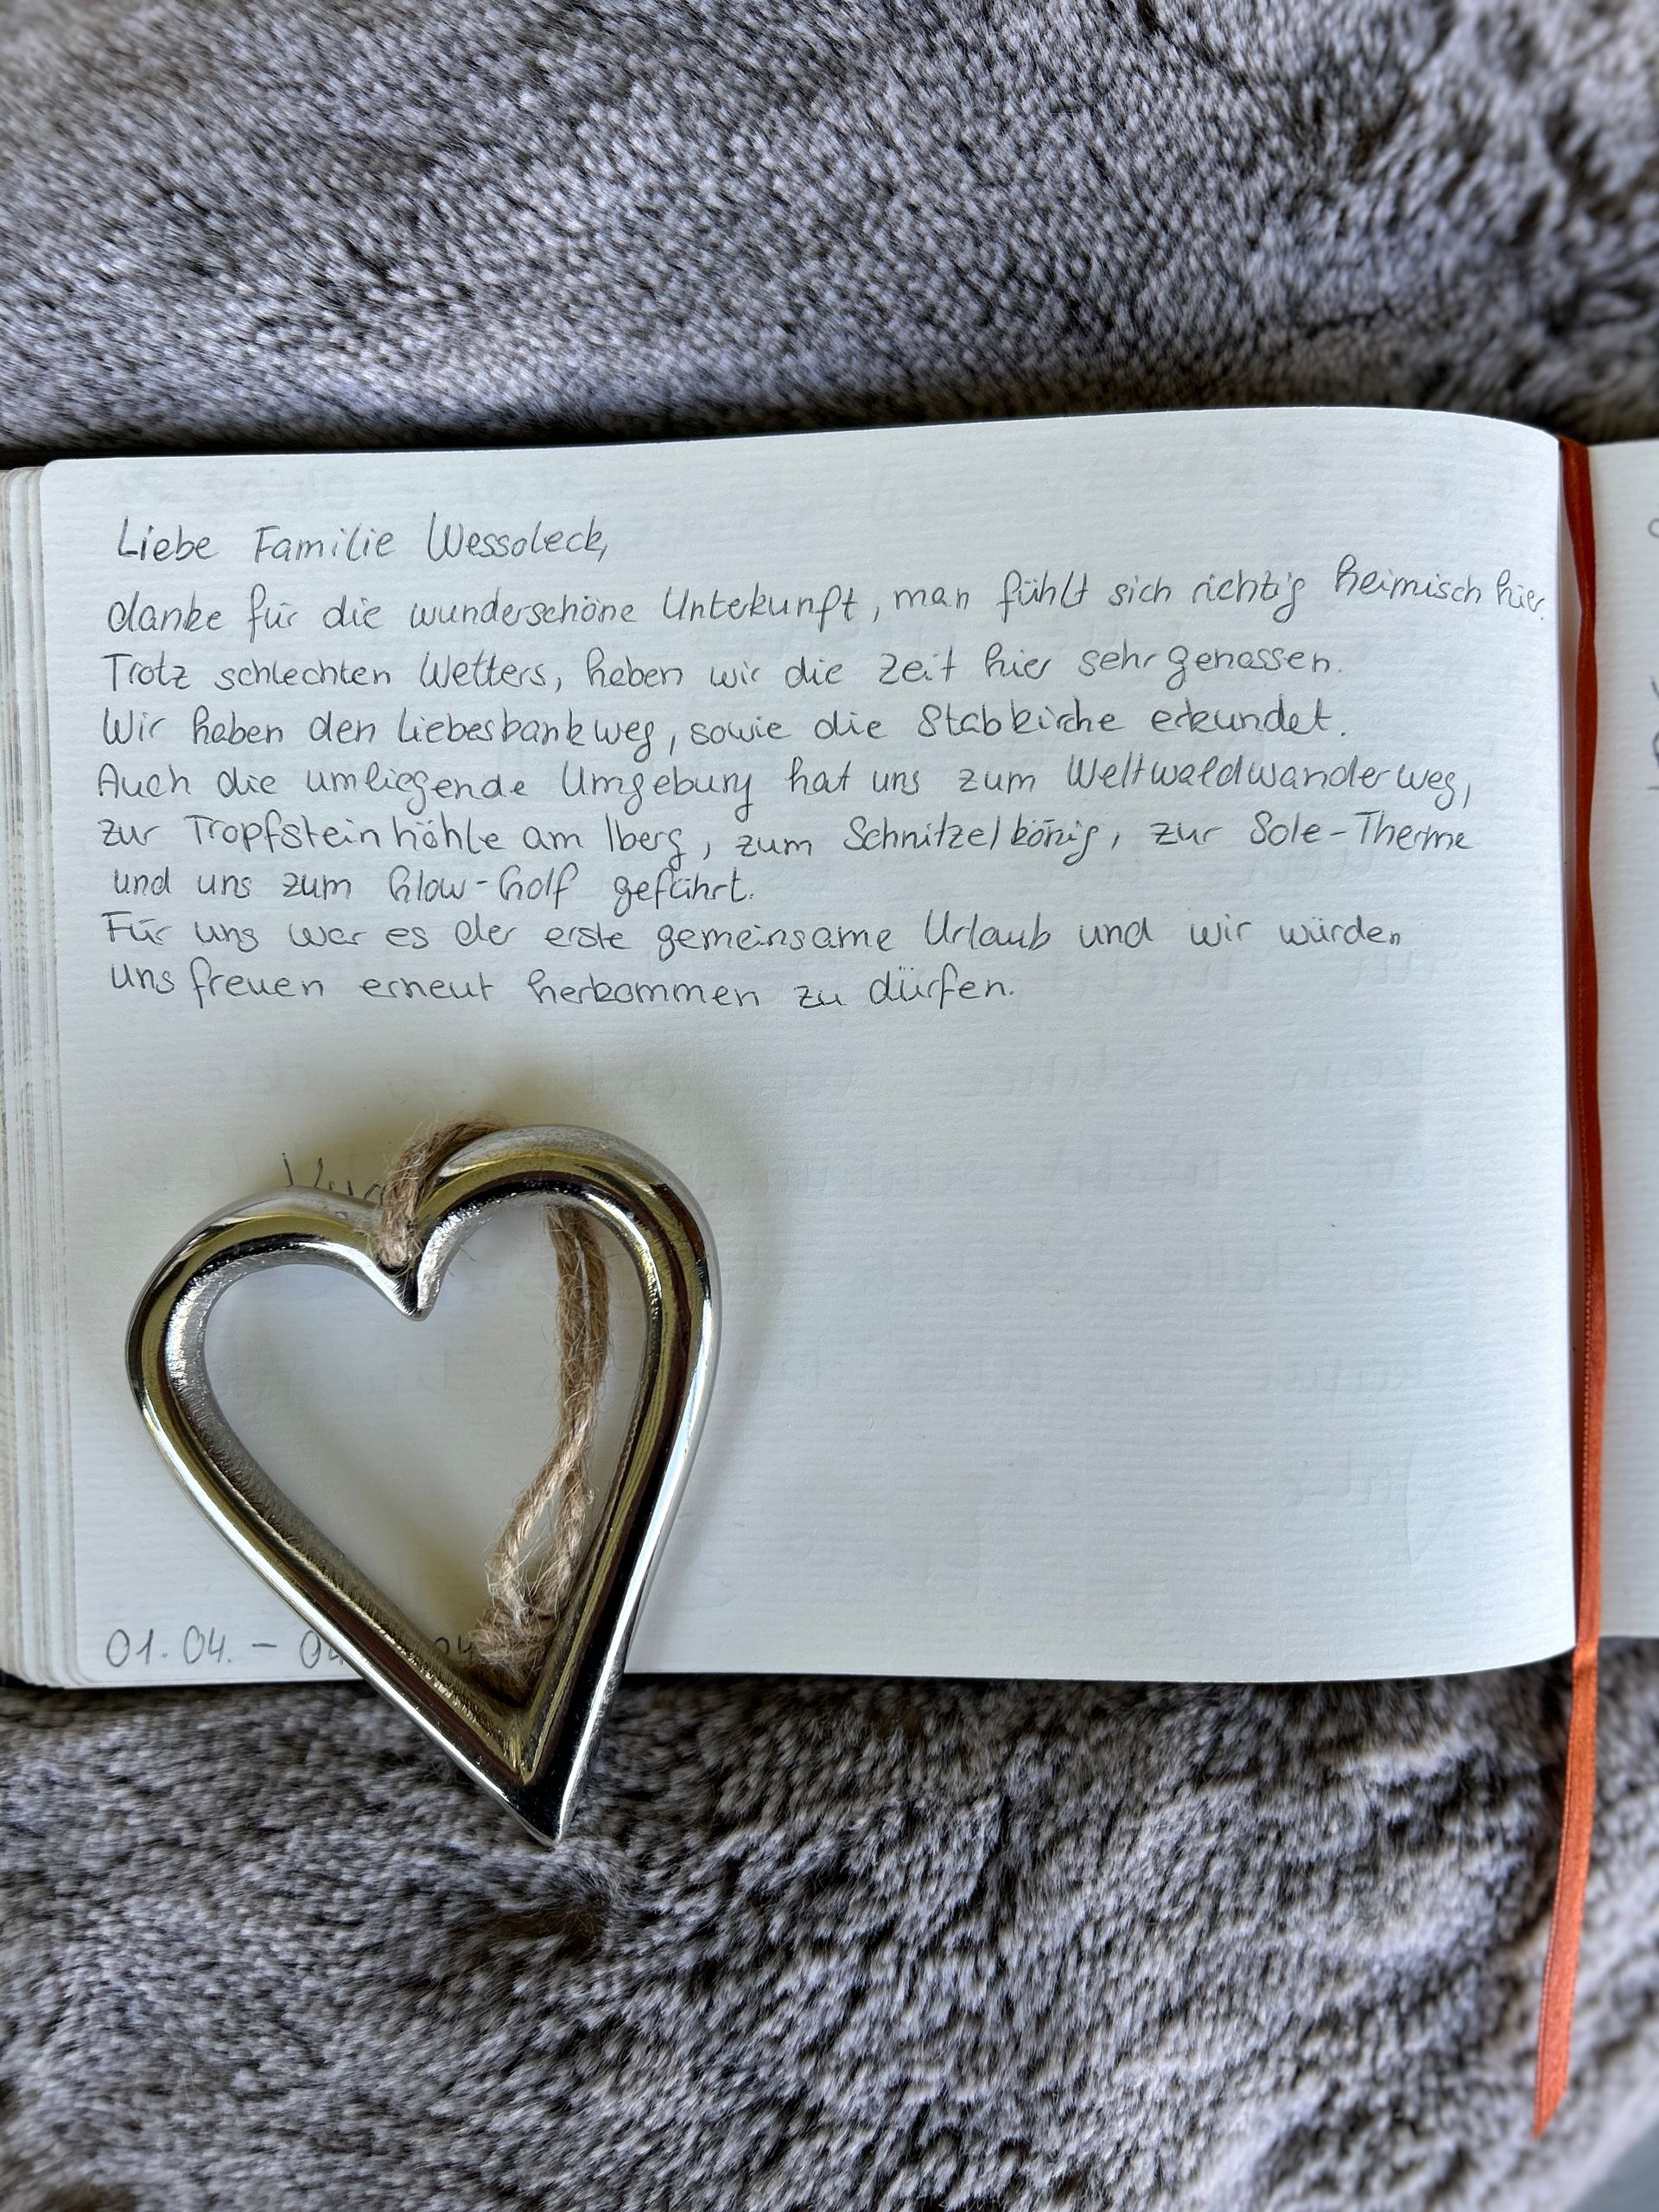 Liebe Familie Wessoleck,
danke für die wunderschöne Unterkunft, man fühlt sich richtig heimisch hier.
Trotz schlechten Wetters, haben wir die Zeit hier sehr genossen.
Wir haben den Liebesbankweg, sowie die Stabkirche erkundet.
Auch die umliegende Umgebung hat uns zum Weltwaldwanderweg,
zur Tropfsteinhöhle am Iberg, zum Schnitzelkönig, zur Sole-Therme
und uns zum Glow-Golf geführt.
Für uns war es der erste gemeinsame Urlaub und wir würden
uns freuen erneut herkommen zu dürfen.
01.04. -